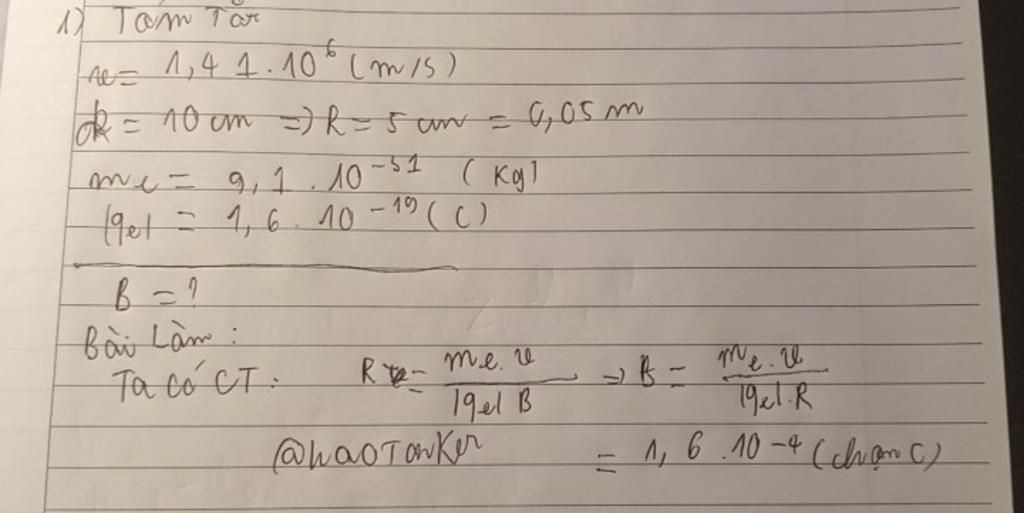 1) Tóm Tắt
v = 1,41.10⁶ (m/s)
d = 10 cm => R = 5 cm = 0,05 m
me = 9,1.10⁻³¹ (Kg)
|qe| = 1,6.10⁻¹⁹ (C)
B = ?
Bài Làm :
Ta có CT : R = me.v / |qe| B → B = me.v / |qe|.R
@haoTanKer = 1,6.10⁻⁴ (chọn C)